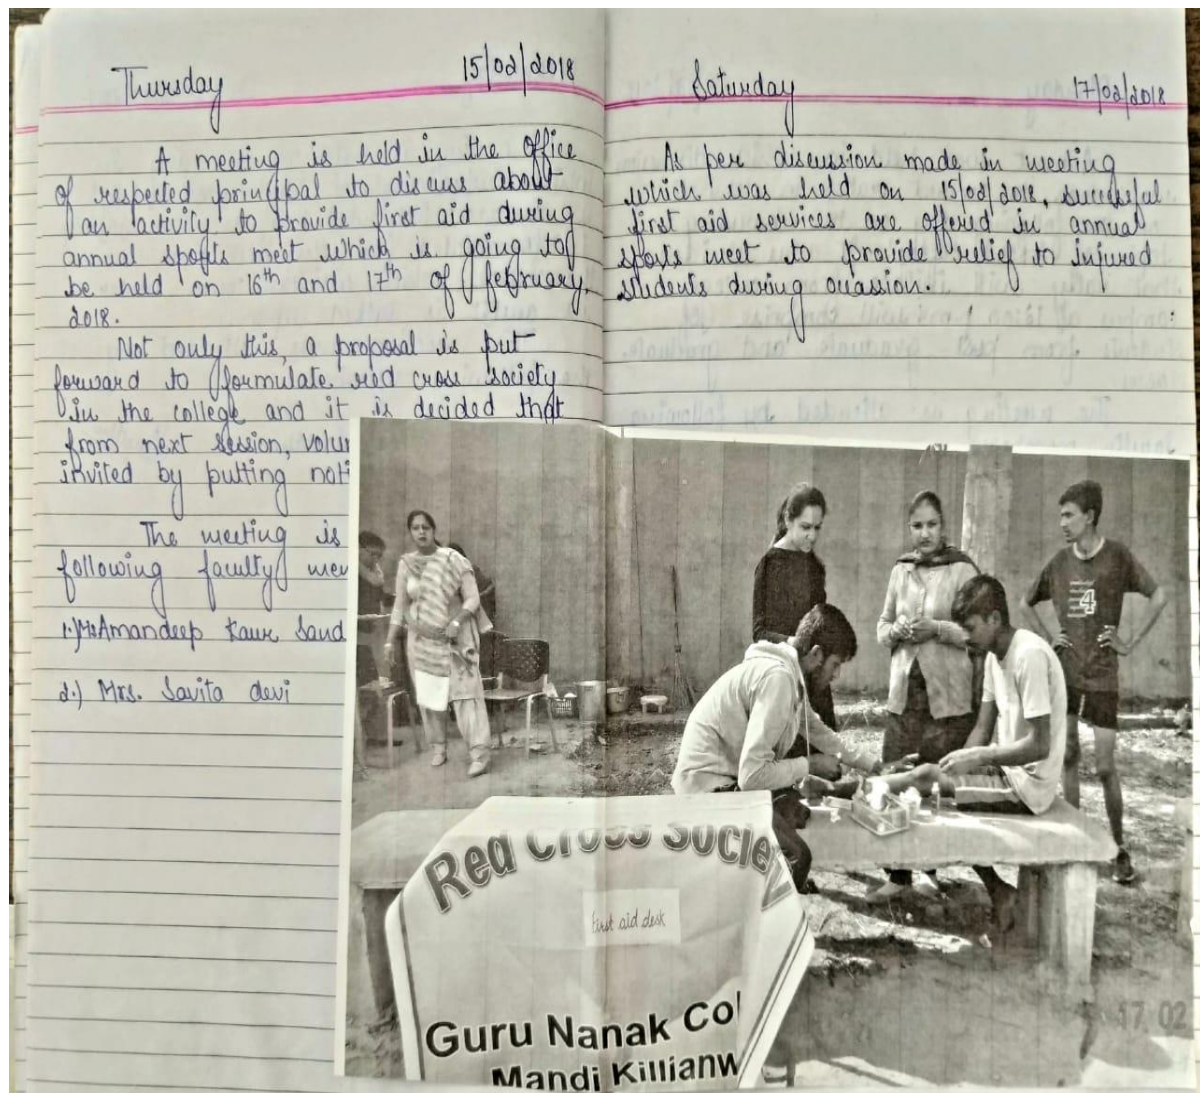 Thursday 15/02/2018
A meeting is held in the office
of respected principal to discuss about
an activity to provide first aid during
annual sports meet which is going to
be held on 16th and 17th of february,
2018.
Not only this, a proposal is put
forward to formulate red cross society
in the college and it is decided that
from next session,
invited by putting
The meeting is
following faculty
1.) Ms Amandeep Kaur
2.) Mrs. Savita devi
Saturday 17/02/2018
As per discussion made in meeting
which was held on 15/02/2018, successful
first aid services are offered in annual
sports meet to provide relief to injured
students during ouassion.
4
Red Cross Society
First aid desk
Guru Nanak Col
Mandi Killianw
17 02